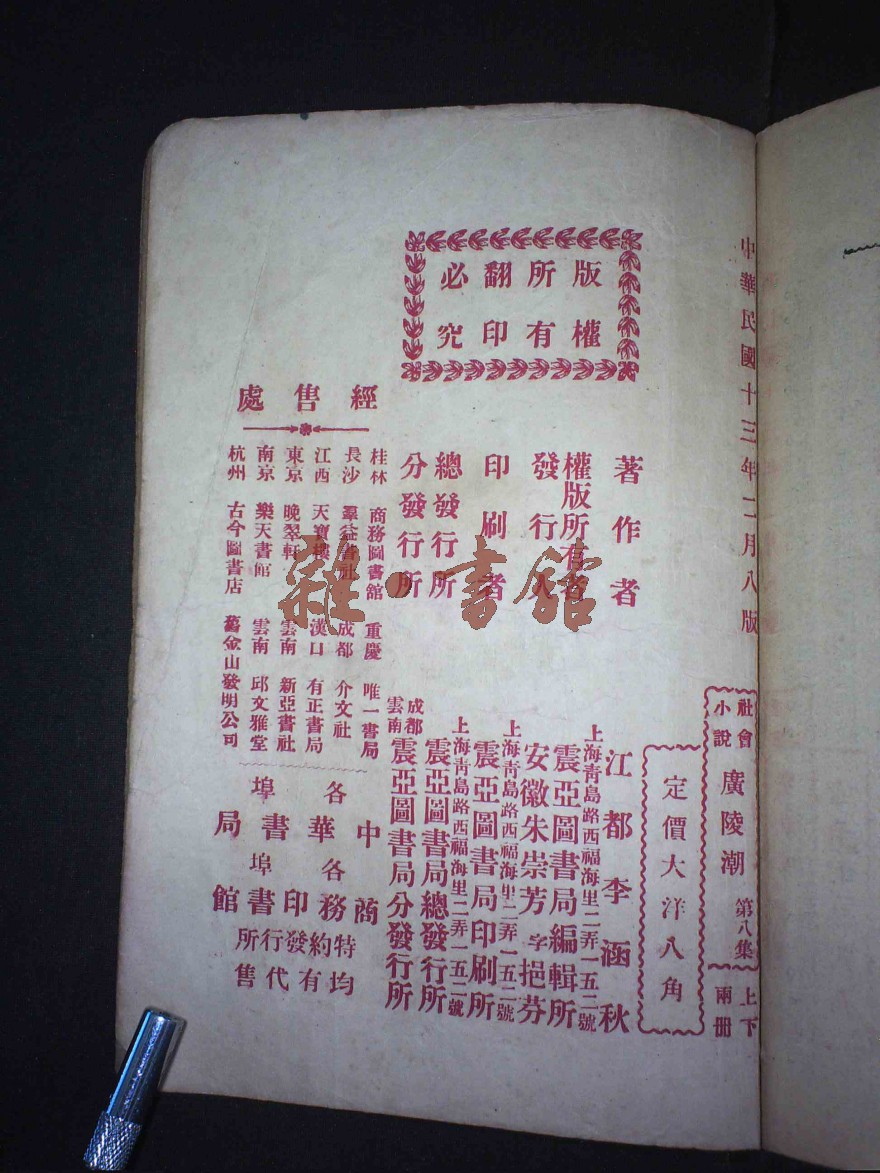 中華民國十三年二月八版
社會小說 廣陵潮 第八集 上下兩冊
定價大洋八角
版權
所有
翻印
必究
著作者 江都李涵秋
權版所有者 上海靑島路西福海里二弄一五二號 震亞圖書局編輯所
發行人 安徽朱崇芳字挹芬
印刷者 上海靑島路西福海里二弄一五二號 震亞圖書局印刷所
總發行所 上海靑島路西福海里二弄一五二號 震亞圖書局總發行所
分發行所 成都 雲南 震亞圖書局分發行所
經售處
桂林 商務圖書館 重慶 唯一書局
長沙 羣益書社 成都 介文社
江西 天寶樓 漢口 有正書局
東京 晚翠軒 雲南 新亞書社
南京 樂天書館 雲南 邱文雅堂
杭州 古今圖書店 舊金山發明公司
中商
各華各務特均
書印約有
埠書埠書發代
局館行售
所
雜·書館